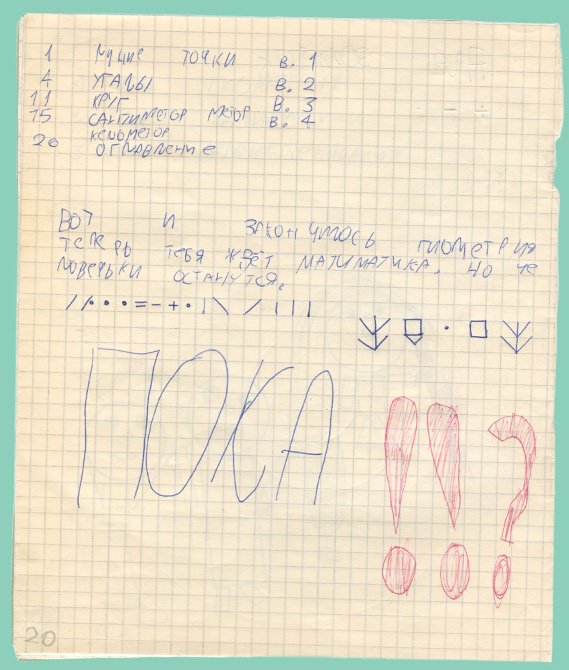 1 лучие точки в. 1
4 угалы в. 2
11 круг в. 3
15 сантиметор метор в. 4
километор
20 оглавление
Вот и закончилось гиометрия
теперь тебя ждёт матиматика, но че
ловечьки останутся.
//•••=-+•|\/|||
ПОКА
!!?
20